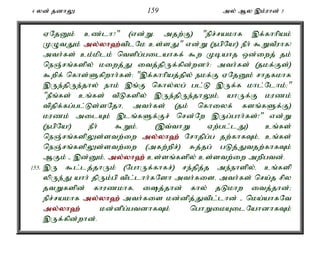 4 லன் தனாலு 159 அல் ஆல இம்ரான் 3
ஏதேனும் உண்டா?" (என்று. அதற்கு) "நிச்சயமாக இக்காரியம்
முழுவதும் அல்லாஹ்விடமே உள்ளது" என்று (நபியே!) நீர் கூறுவீராக!
அவர்கள் உம்மிடம் வெளிப்படையாகக் கூற முடியாத ஒன்றைத் தம்
நெஞ்சங்களில் மறைத்து வைத்திருக்கின்றனர்; அவர்கள் (தமக்குள்)
கூறிக் கொள்ளுகிறார்கள்: "இக்காரியத்தில் நமக்கு ஏதேனும் சாதகமாக
இருந்திருந்தால் நாம் இங்கு கொல்லப் பட்டு இருக்க மாட்டோம்;"
"நீங்கள் உங்கள் வீடுகளில் இருந்திருந்தாலும், யாருக்கு மரணம்
விதிக்கப்பட்டுள்ளதோ, அவர்கள் (தம் கொலைக் களங்களுக்கு)
மரணம் அடையும் இடங்களுக்குச் சென்றே இருப்பார்கள்!" என்று
(நபியே!) நீர் கூறும். (இவ்வாறு ஏற்பட்டது) உங்கள்
நெஞ்சங்களிலுள்ளவற்றை அல்லாஹ் சோதிப்ப தற்காகவும், உங்கள்
நெஞ்சங்களிலுள்ளவற்றை (அகற்றிச்) சுத்தப் படுத்துவதற்காகவும்
ஆகும் , இன்னும், அல்லாஹ் உள்ளங்களில் உள்ளவற்றை அறிபவன்.
155. இரு கூட்டத்தாரும் (போருக்காகச்) சந்தித்த அந்நாளில், உங்களி
லிருந்து யார் திரும்பி விட்டார்களோ அவர்களை, அவர்கள் செய்த சில
தவறுகளின் காரணமாக, ஷைத்தான் கால் தடுமாற வைத்தான்;
நிச்சயமாக அல்லாஹ் அவர்களை மன்னித்துவிட்டான் , மெய்யாகவே
அல்லாஹ் மன்னிப்பவனாகவும் பொறுமையுடையோனாகவும்
இருக்கின்றான்.